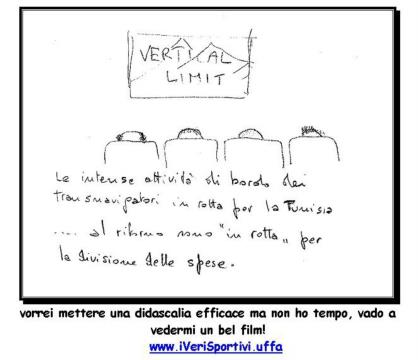 VERTICAL
LIMIT
Le intense attività di bordo dei
transnavigatori in rotta per la Tunisia
.... al ritorno sono "in rotta„ per
la divisione delle spese.
vorrei mettere una didascalia efficace ma non ho tempo, vado a
vedermi un bel film!
www.iVeriSportivi.uffa